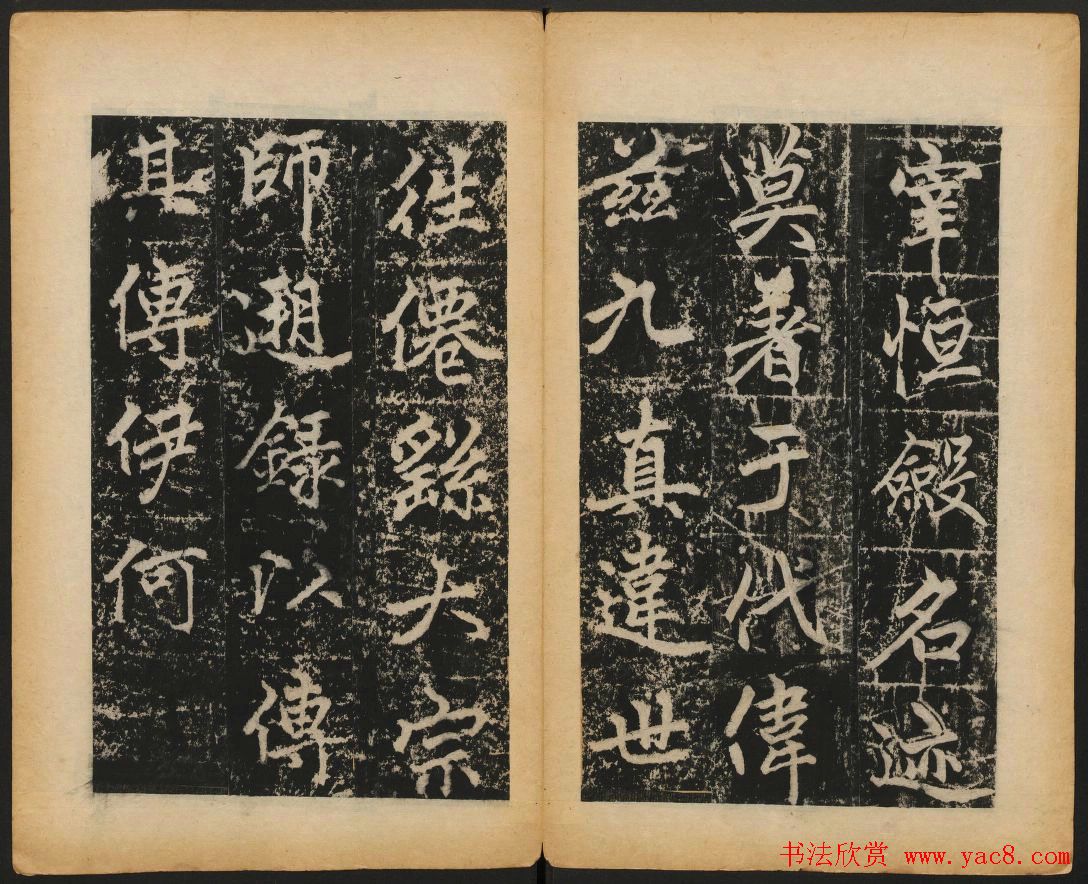 宰恒斂名迹
莫著于代偉
茲九真違世
往僊繇大宗
師遡錄以傳
其傳伊何
书法欣赏 www.yac8.com